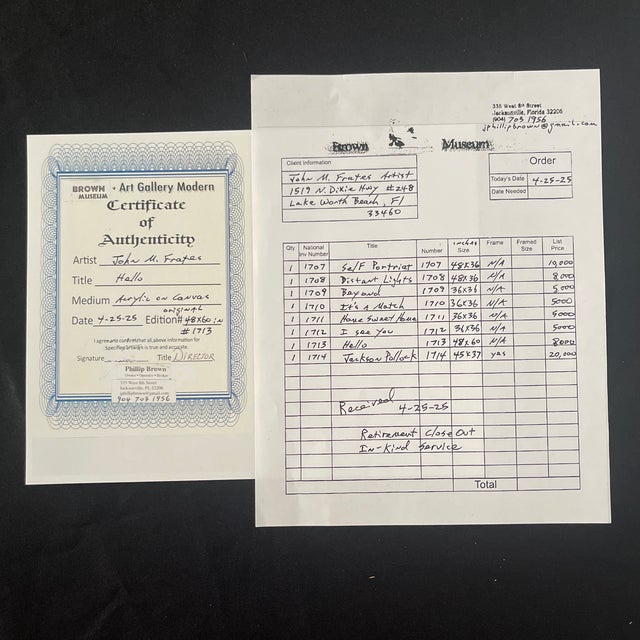 BROWN MUSEUM • Art Gallery Modern
Certificate
of
Authenticity
Artist John M. Frates
Title Hello
Medium Acrylic on Canvas
original
Date 4-25-25 Edition# 48x60 in
# 1713
I agree and confirm that all above information for
Specified artwork is true and accurate.
Signature Title DIRECTOR
Phillip Brown
335 West 8th Street
Jacksonville, FL 32206
jphillipbrown@gmail.com
904 703 1956
335 West 8th Street
Jacksonville, Florida 32206
(904) 703 1956
jphillipbrown@gmail.com
Brown Museum
Client Information
John M. Frates Artist
1519 N. Dixie Hwy #248
Lake Worth Beach, Fl
33460
Order
Today's Date 4-25-25
Date Needed
Qty National Inv Number Title Number inches Size Frame Framed Size List Price
1 1707 Self Portriat 1707 48x36 N/A 10,000
1 1708 Distant Lights 1708 48x36 N/A 8,000
1 1709 Beyond 1709 36x36 N/A 5,000
1 1710 It's a Match 1710 36x36 N/A 5000
1 1711 Home Sweet Home 1711 36x36 N/A 5000
1 1712 I see you 1712 36x36 N/A 5000
1 1713 Hello 1713 48x60 N/A 8000
1 1714 Jackson Pollock 1714 45x37 yes 20,000
Received 4-25-25
Retirement Close Out
In-Kind Service
Total